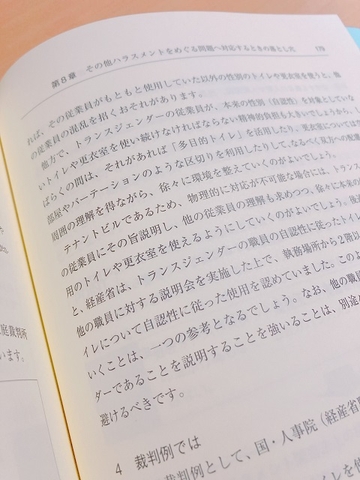 第8章 その他ハラスメントをめぐる問題へ対応するときの落とし穴
れば、その従業員がもともと使用していた以外の性別のトイレや更衣室を使うと、他
の従業員の混乱を招くおそれがあります。
他方で、トランスジェンダーの従業員が、本来の性別（自認性）を対象としていな
いトイレや更衣室を使い続けなければならない精神的負担も大きいでしょうから、し
ばらくの間は、それがあれば「多目的トイレ」を活用したり、更衣室については
部屋やパーテーションのような区切りを利用したりして、なるべく双方への配慮
周囲の理解を得ながら、徐々に環境を整えていくのがよいでしょう。
テナントビルであるため、物理的に対応が不可能な場合には、トランス
の従業員にその旨説明し、他の従業員の理解も求めつつ、徐々に本来の
用のトイレや更衣室を使えるようにしていくのがよいでしょう。
と、経産省は、トランスジェンダーの職員の自認性に従ったトイ
他の職員に対する説明会を実施した上で、執務場所から2階以
イレについて自認性に従った使用を認めていました。このよ
いくことは、一つの参考となるでしょう。なお、他の
ダーであることを説明することを強いることは、別途
避けるべきです。
4 裁判例では
裁判例として、国・人事院（経産省
イレを使
庭裁判所
います。